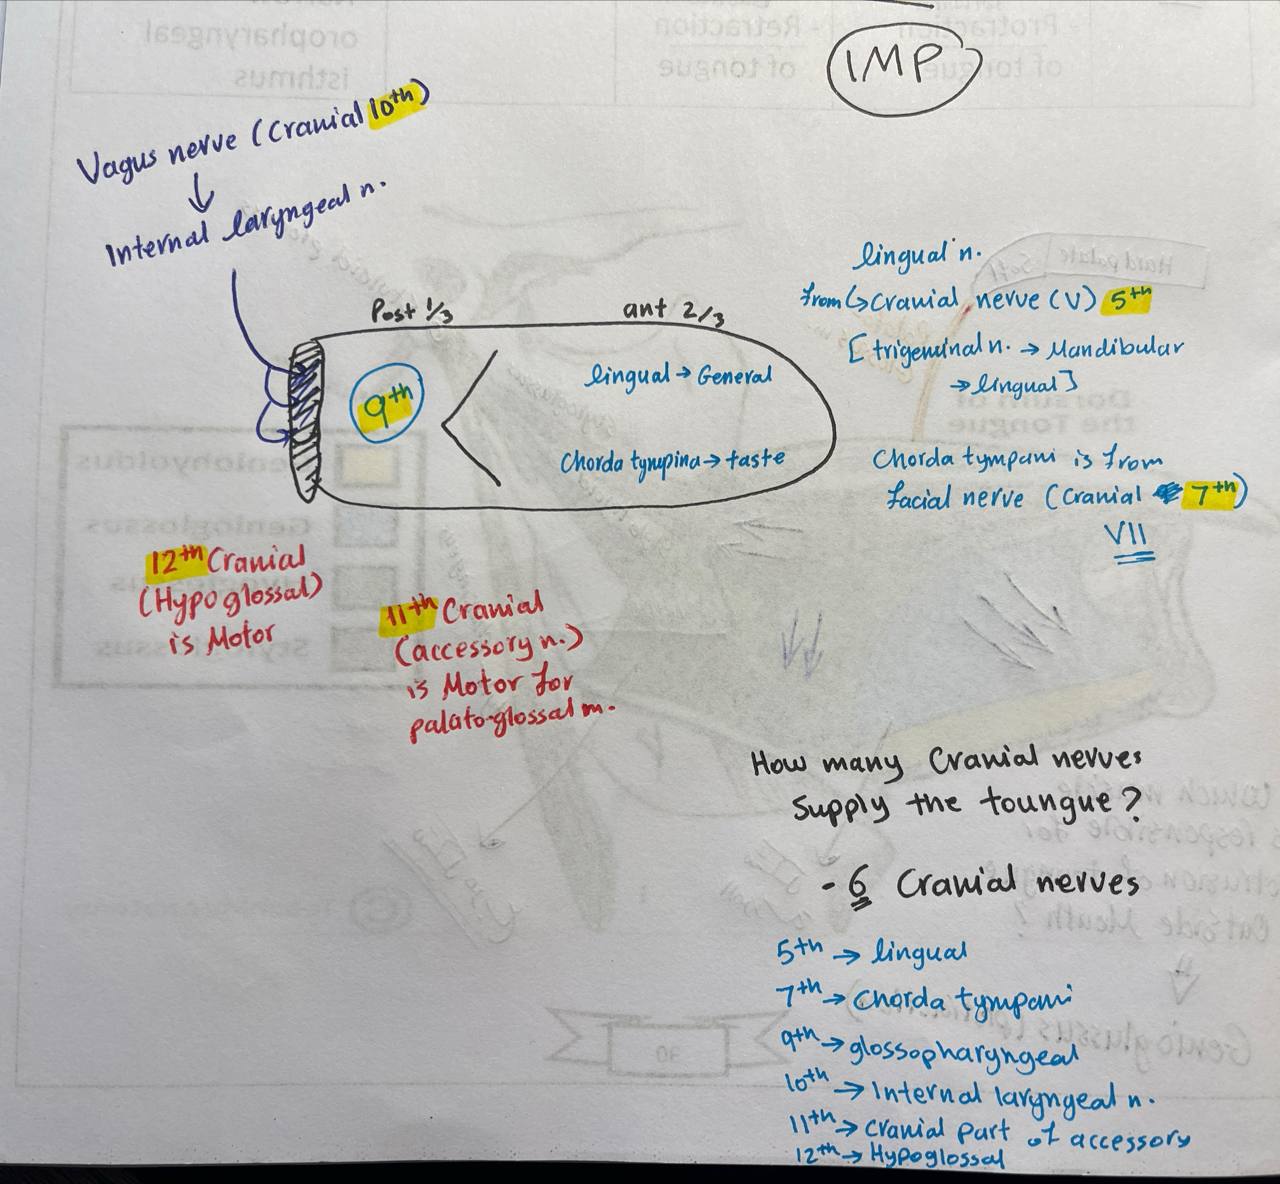 IMP
Vagus nerve (Cranial 10th)
↓
Internal laryngeal n.
Post 1/3
ant 2/3
9th
lingual → General
Chorda tympina → taste
lingual n.
from ↳ Cranial nerve (V) 5th
[trigeminal n. → Mandibular
→ lingual]
Chorda tympani is from
facial nerve (Cranial 7th)
VII
12th Cranial
(Hypoglossal)
is Motor
11th Cranial
(accessory n.)
is Motor for
palato-glossal m.
How many Cranial nerves
Supply the toungue?
- 6 Cranial nerves
5th → lingual
7th → Chorda tympani
9th → glossopharyngeal
10th → Internal laryngeal n.
11th → Cranial part of accessory
12th → Hypoglossal